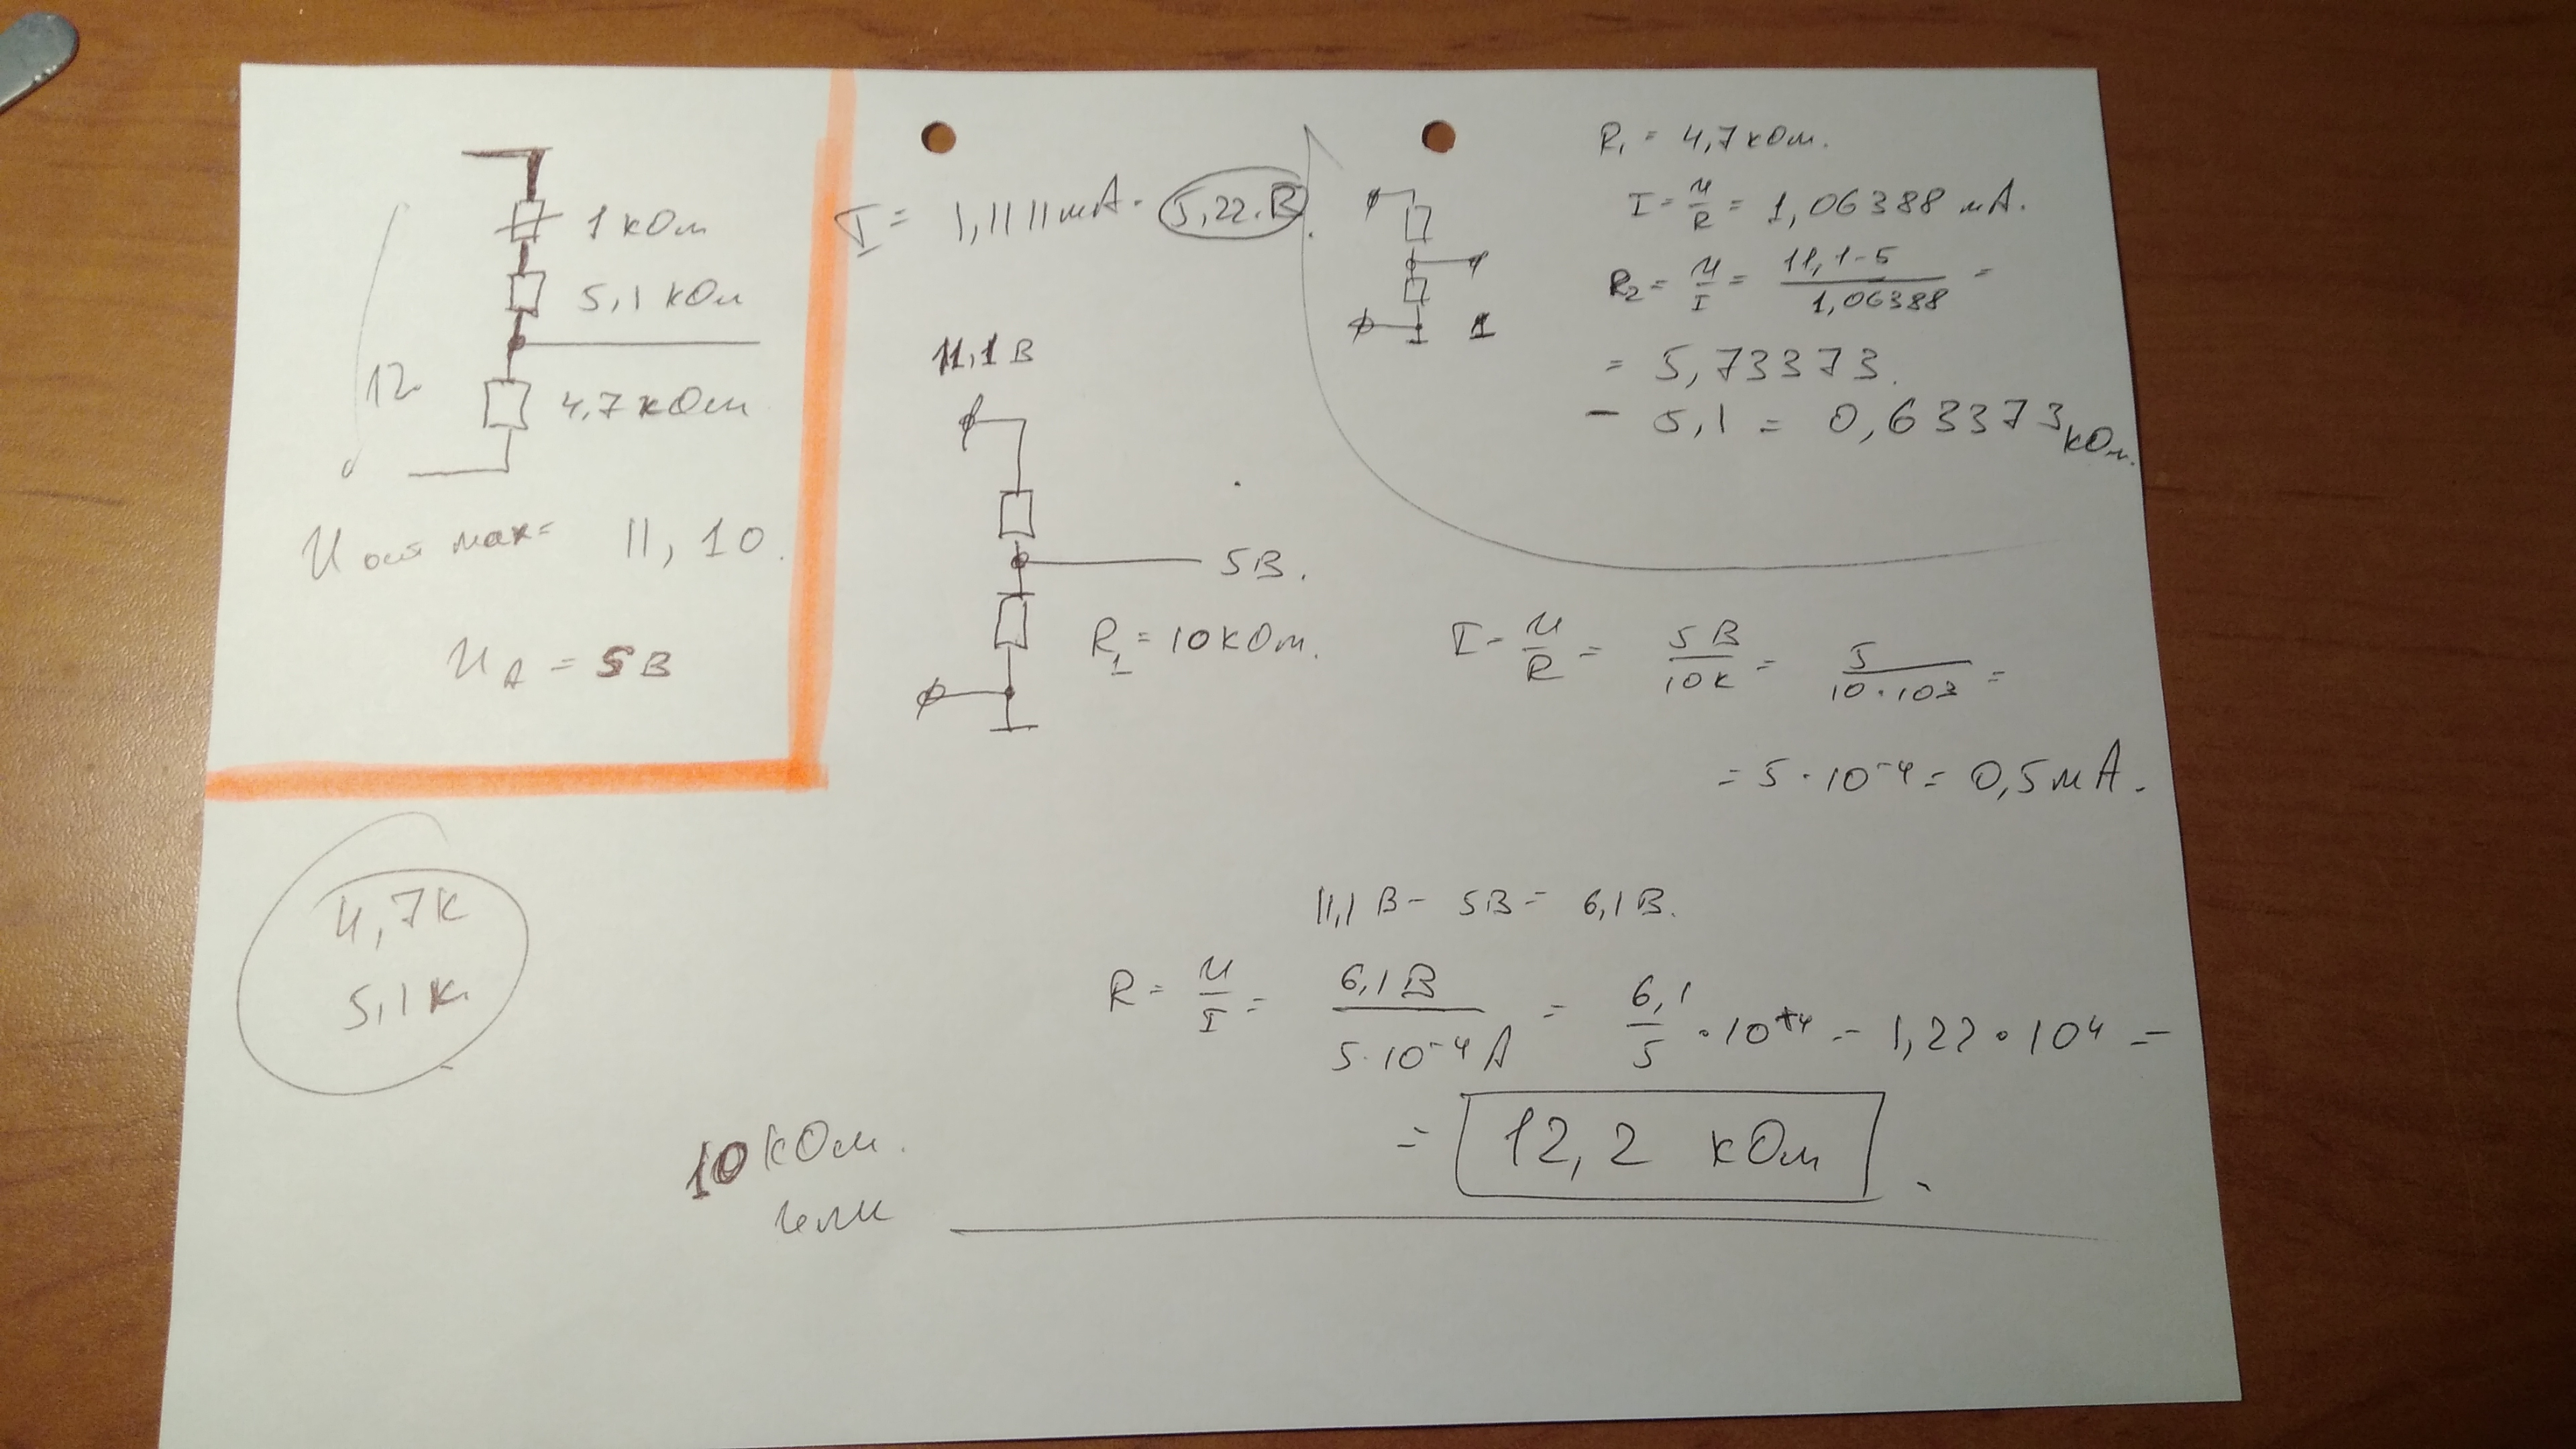 1 кОм
5,1 кОм
12
4,7 кОм
max = 11,10.
U_A = 5В
I = 1,1111 мА. 5,22.В.
11,1 В
5В.
R_1 = 10 кОм.
R_1 = 4,7 кОм.
I = U/R = 1,06388 мА.
R_2 = U/I = (11,1-5)/1,06388 =
1
= 5,73373.
- 5,1 = 0,63373 кОм.
I = U/R = 5 В/10к = 5/(10·10³) =
= 5·10⁻⁴ = 0,5 мА.
11,1 В - 5В = 6,1 В.
R = U/I = 6,1 В/(5·10⁻⁴ А) = 6,1/5 · 10⁺⁴ = 1,22·10⁴ =
= 12,2 кОм.
4,7к
5,1к.
10 кОм.